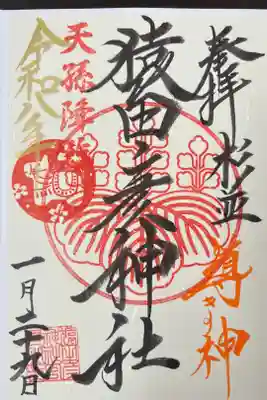 奉拝 杉並
導きの神
猿田彦神社
天孫降臨
令和八年
一月二十九日